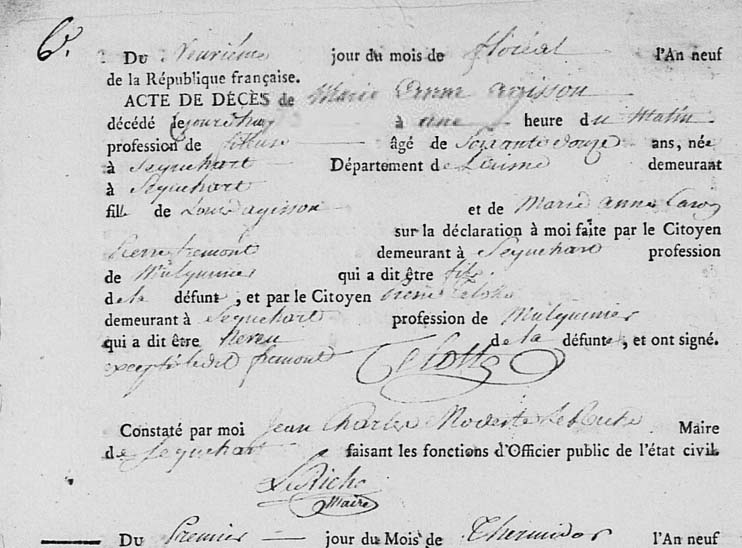 6.
Du neuvième jour du mois de floréal l'An neuf
de la République française.
ACTE DE DÉCÈS de Marie Anne agisson
décédé le jourdhuy à une heure du Matin
profession de fileuse âgé de Soixante douze ans, née
à Sequehart Département de Laisne demeurant
à Sequehart
fille de Louis agisson et de Marie anne Caron
sur la déclaration à moi faite par le Citoyen
Pierre fremont demeurant à Sequehart profession
de Mulquinier qui a dit être fils
de la défunte, et par le Citoyen
demeurant à Sequehart profession de Mulquinier
qui a dit être Neveu de la défunte, et ont signé.
excepté ledit fremont
Constaté par moi Jean Charles Modeste LeRiche Maire
de Sequehart faisant les fonctions d'Officier public de l'état civil
LeRiche
Maire
Du Premier jour du Mois de Thermidor l'An neuf